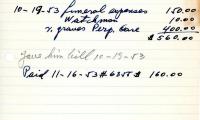 10-19-53 funeral expenses 150.00
Watchman 10.00
½ graves Perp. Care 400.00
$560.00
Gave him bill 10-19-53
Paid 11-16-53 # 6255 $ 160.00